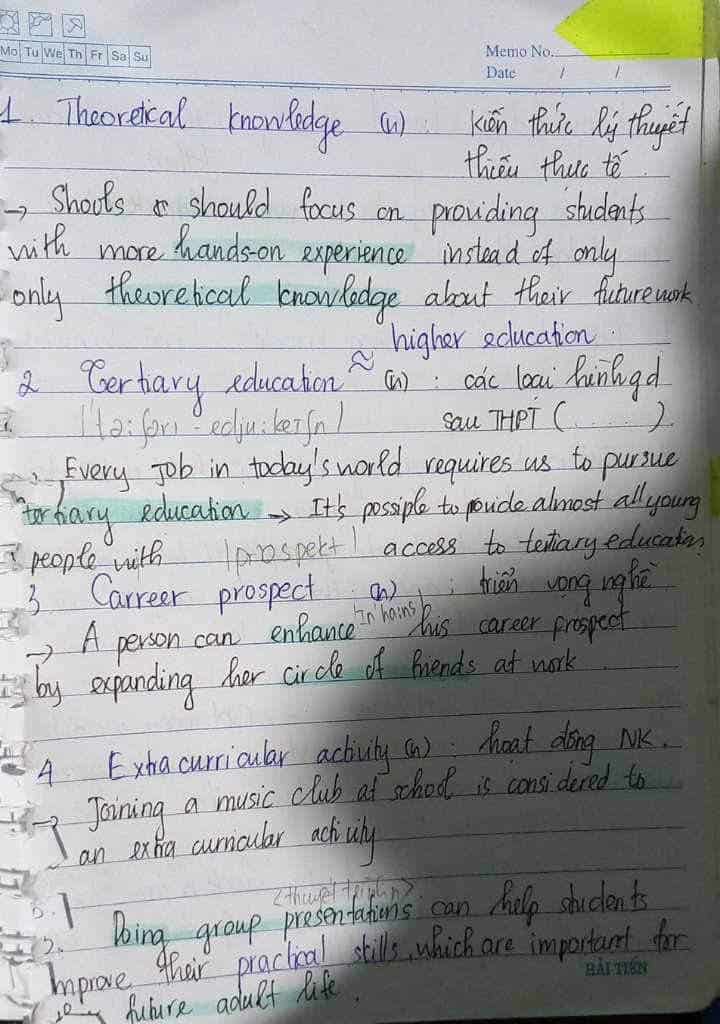 Mo Tu We Th Fr Sa Su
Memo No.
Date / /
1. Theoretical knowledge (n) : kiến thức lý thuyết
thiếu thực tế
→ Shools should focus on providing students
with more hands-on experience instead of only
only theoretical knowledge about their future work
≈ higher education
2 Tertiary education (n) : các loại hình gd
sau THPT (.....)
→ Every job in today's world requires us to pursue
tertiary education → It's possiple to povide almost all young
people with access to tertiary education
|prospekt|
3 Carreer prospect (n) : triển vọng nghề
→ A person can enhance his career prospect
by expanding her circle of friends at work
4 Extracurricular activity (n) : hoạt động NK.
→ Joining a music club at school is considered to
an extra curricular activity
<thuyết trình>
Doing group presentations can help students
improve their practical skills, which are important for
future adult life.
HẢI TIẾN